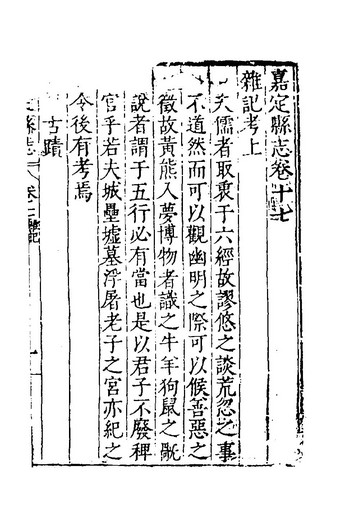 嘉定縣志卷十七
雜記考上
夫儒者取衷于六經故謬悠之談荒忽之事
不道然而可以觀幽明之際可以候善惡之
徵故黃熊入夢博物者識之牛羊狗鼠之
說者謂于五行必有當也是以君子不廢稗
官乎若夫城壘墟墓浮屠老子之宮亦紀之
令後有考焉
古蹟
縣志 卷十 雜記 一